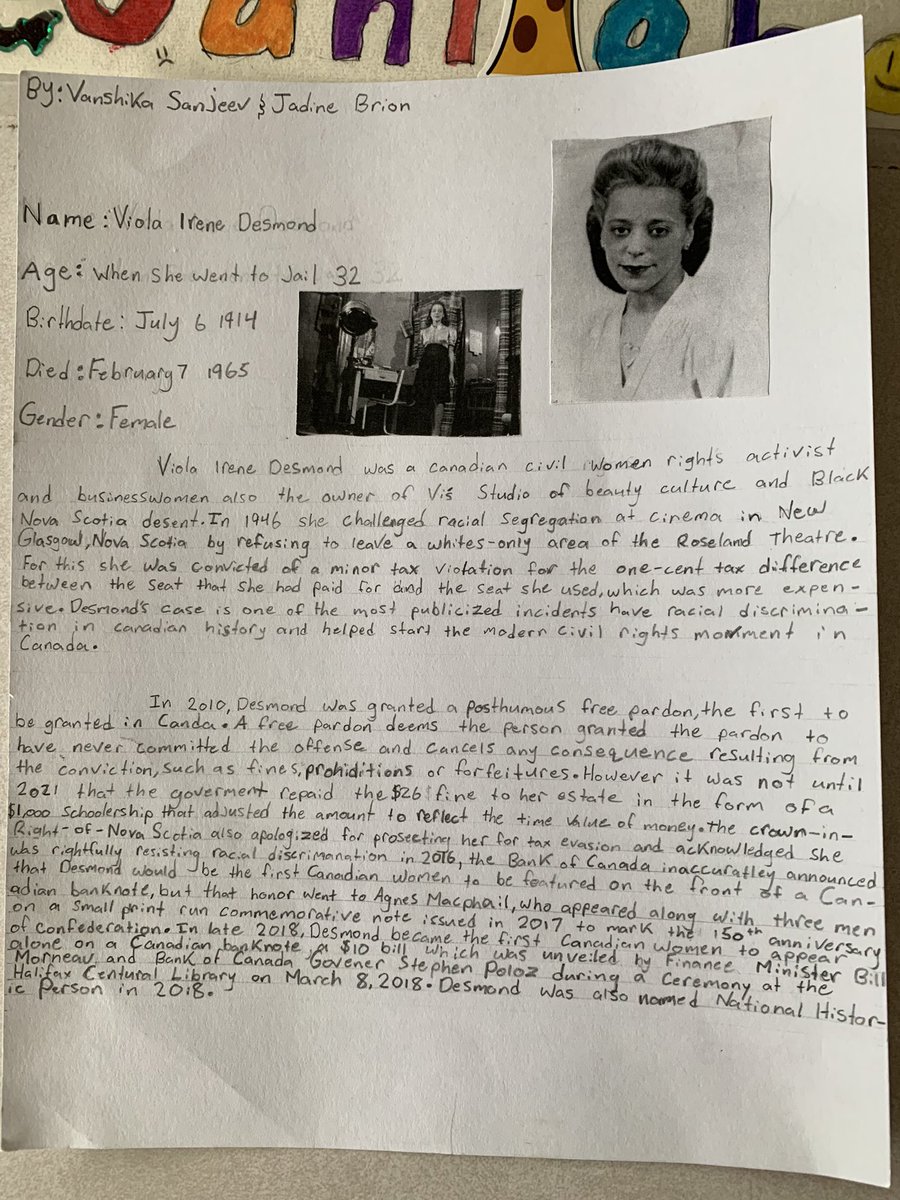 By: Vanshika Sanjeev & Jadine Brion
Name: Viola Irene Desmond
Age: When She went to Jail 32
Birthdate: July 6 1914
Died: February 7 1965
Gender: Female
Viola Irene Desmond was a canadian civil women rights activist
and businesswomen also the owner of Vi's Studio of beauty culture and Black
Nova Scotia desent. In 1946 she challenged racial segregation at cinema in New
Glasgow, Nova Scotia by refusing to leave a whites-only area of the Roseland Theatre.
For this she was convicted of a minor tax violation for the one-cent tax difference
between the seat that she had paid for and the seat she used, which was more expen-
sive. Desmond's case is one of the most publicized incidents have racial discrimina-
tion in canadian history and helped start the modern civil rights movment in
Canada.
In 2010, Desmond was granted a posthumous free pardon, the first to
be granted in Canda. A free pardon deems the person granted the pardon to
have never committed the offense and cancels any consequence resulting from
the conviction, such as fines, prohiditions or forfeitures. However it was not until
2021 that the goverment repaid the $26 fine to her estate in the form of a
$1,000 schoolership that adjusted the amount to reflect the time value of money. the crown-in-
Right-of-Nova Scotia also apologized for prosecting her for tax evasion and acknowledged she
was rightfully resisting racial discrimanation in 2016, the Bank of Canada inaccuratley announced
that Desmond would be the first Canadian women to be featured on the front of a Can-
adian banknote, but that honor went to Agnes Macphail, who appeared along with three men
on a small print run commemorative note issued in 2017 to mark the 150th anniversary
of confederation. In late 2018, Desmond became the first Canadian women to appear
alone on a Canadian banknote, a $10 bill which was unveiled by Finance Minister Bill
Morneau and Bank of Canada Govener Stephen Poloz during a Ceremony at the
Halifax Centural Library on March 8, 2018. Desmond was also named National Histor-
ic Person in 2018.